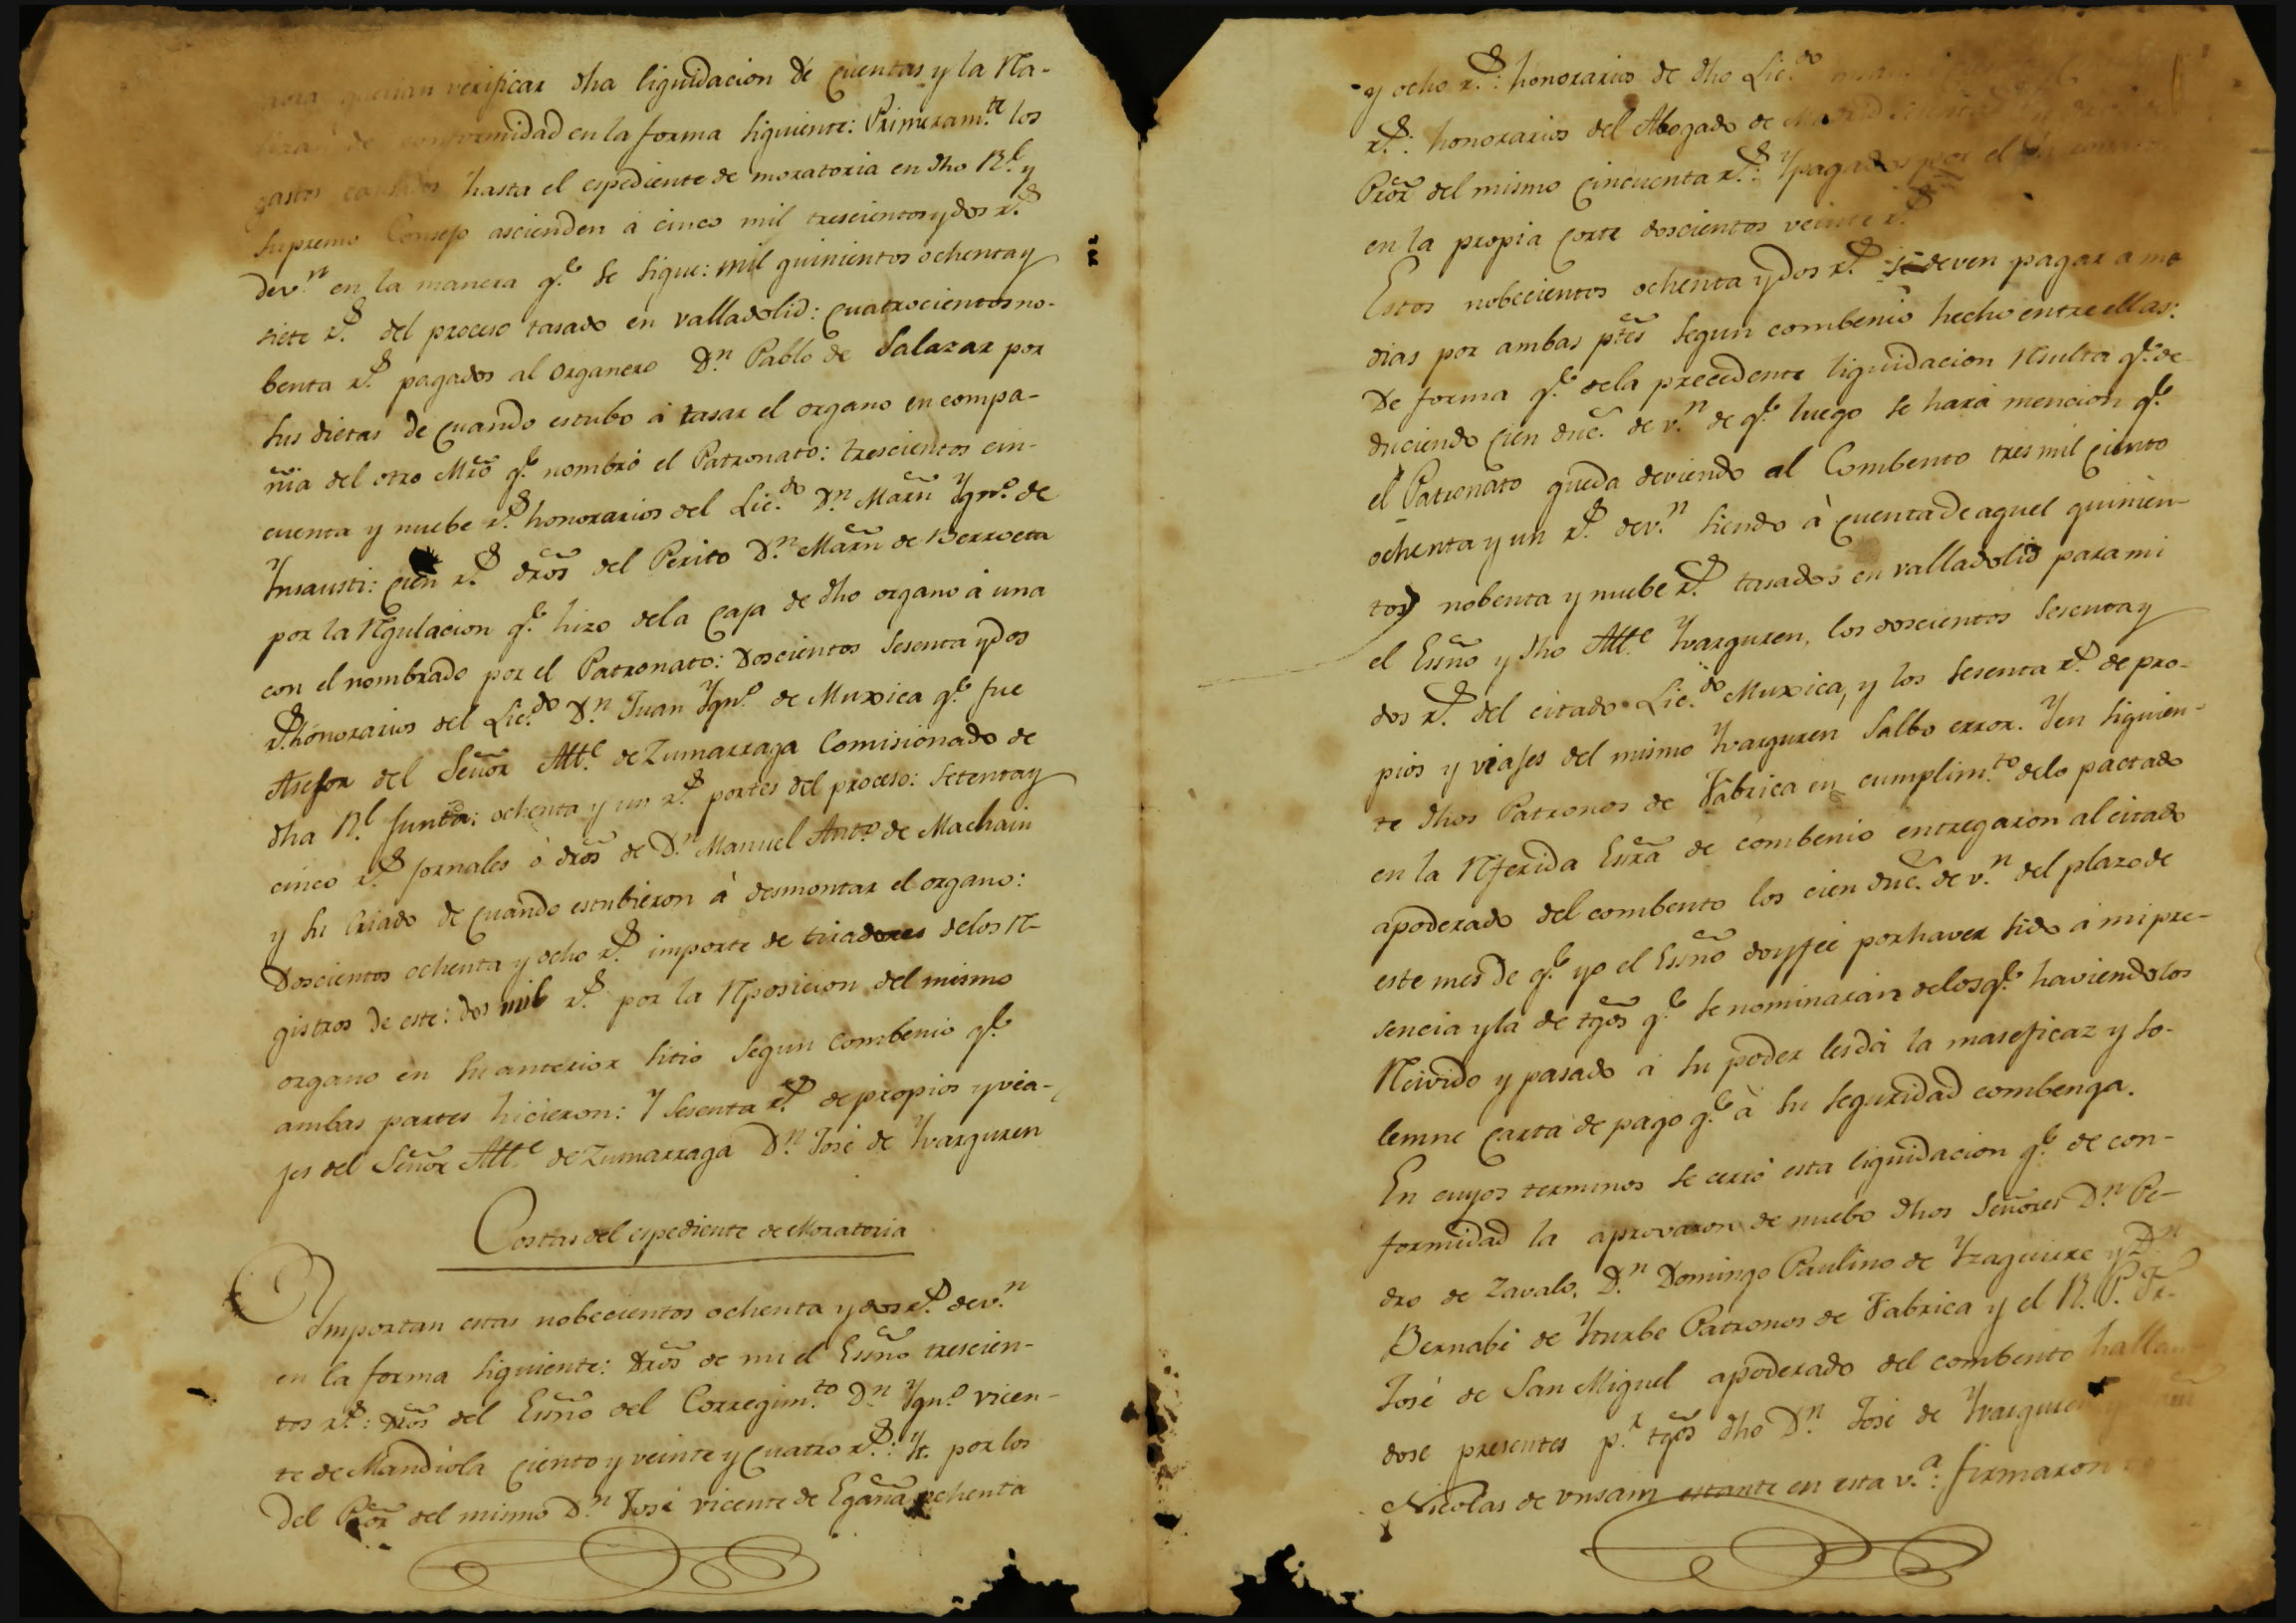 verificar dha liquidacion de cuentas y la Rea-
de conformidad en la forma siguiente: Primeram.te los
gastos causados hasta el espediente de moratoria en dho R.l y
Supremo Consejo ascienden á cinco mil trescientos y dos r.s
de v.n en la manera q.e se sigue: mil quinientos ochenta y
siete r.s del proceso tasado en valladolid: quatrocientos no-
benta r.s pagados al organero D.n Pablo de Salazar por
sus dietas de quando estubo á tasar el organo en compa-
ñia del otro Mro q.e nombró el Patronato: trescientos cin-
cuenta y nuebe r.s honorarios del Lic.do D.n Marñ Ygn.o de
Ynsausti: cien r.s dros del Perito D.n Marñ de Berroeta
por la Regulacion q.e hizo dela caja de dho organo á una
con el nombrado por el Patronato: Doscientos sesenta y dos
r.s honorarios del Lic.do D.n Juan Ygn.o de Muxica q.e fue
Asesor del Señor Alt.e de Zumarraga Comisionado de
dha R.l Junta: ochenta y un r.s portes del proceso: setenta y
cinco r.s jornales ó dros de D.n Manuel Ant.o de Machain
y su criado de quando estubieron á desmontar el organo:
Doscientos ochenta y ocho r.s importe de tiradores delos Re-
gistros de este: dos mil r.s por la Reposicion del mismo
organo en su anterior sitio segun Combenio q.e
ambas partes hicieron: Y sesenta r.s de propios y via-
jes del Señor Alt.e de Zumarraga D.n José de Yvarguren
Costas del espediente de Moratoria
Ymportan estas nobecientos ochenta y dos r.s de v.n
en la forma siguiente: Dros de mi el Essno trescien-
tos r.s: Dros del Essno del Corregim.to D.n Ygn.o vicen-
te de Mandiola ciento y veinte y quatro r.s: Yt. por los
Del Pror del mismo D.n José vicente de Egaña ochenta
y ocho r.s: honorarios de dho Lic.do
r.s: honorarios del Abogado de Madrid
Pror del mismo cinquenta r.s: Y pagados por el
en la propia Corte doscientos veinte r.s
Estos nobecientos ochenta y dos r.s se deven pagar a me
dias por ambas ptes segun combenio hecho entre ellas:
De forma q.e dela precedente liquidacion Resulta q.e de-
duciendo cien duc.s de v.n de q.e luego se hará mencion q.e
el Patronato queda deviendo al Combento tres mil ciento
ochenta y un r.s de v.n siendo á cuenta de aquel quinien-
tos nobenta y nuebe r.s tasados en valladolid para mi
el Essno y dho Alt.e Yvarguren, los doscientos sesenta y
dos r.s del citado Lic.do Muxica, y los sesenta r.s de pro-
pios y viajes del mismo Yvarguren Salbo error. Y en siguien-
te dhos Patronos de Fabrica en cumplim.to delo pactado
en la Referida Essra de combenio entregaron al citado
apoderado del combento los cien duc.s de v.n del plazo de
este mes de q.e yo el Essno doy fee por haver sido á mi pre-
sencia y la de tgos q.e se nominarán delos q.e haviendolos
Recivido y pasado á su poder les dá la mas eficaz y so-
lemne carta de pago q.e á su seguridad combenga.
En cuyos terminos se cerró esta liquidacion q.e de con-
formidad la aprovaron de nuebo dhos Señores D.n Pe-
dro de Zavalo, D.n Domingo Paulino de Yzaguirre y D.n
Bernabé de Yturbe Patronos de Fabrica y el R. P. Fr.
José de San Miguel apoderado del combento hallan-
dose presentes p.r tgos dho D.n José de Yvarguren
Nicolas de Unsain estante en esta v.a: firmaron